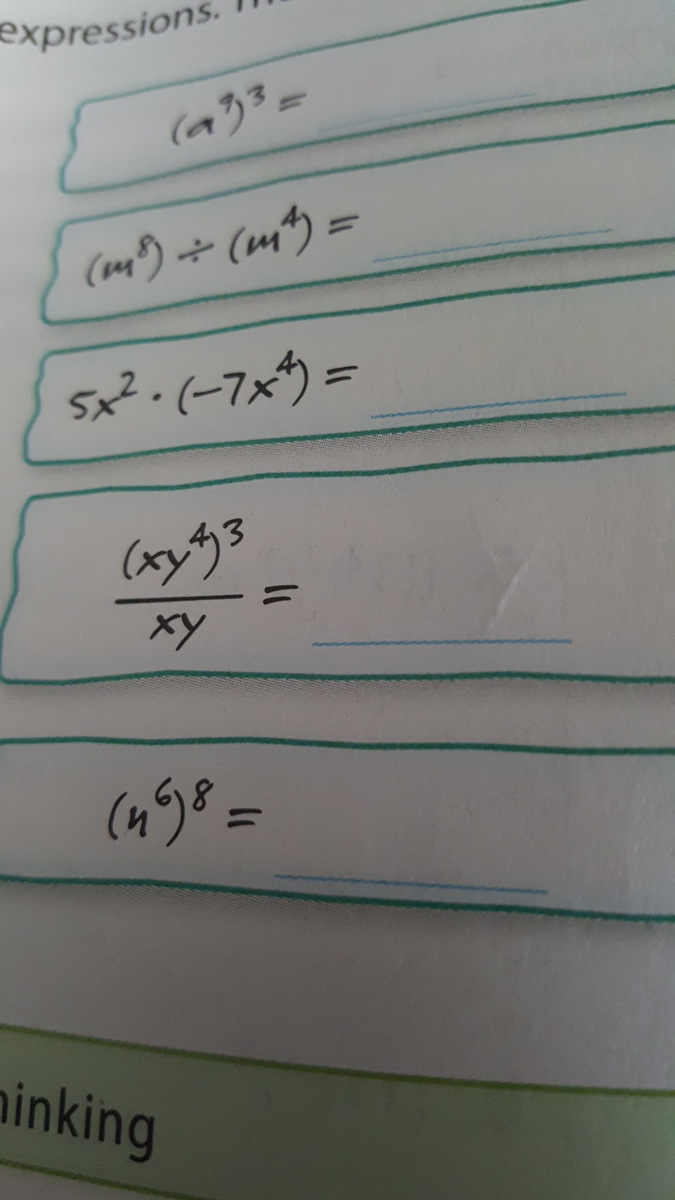 expressions.
(a⁹)³ =
(m⁸) ÷ (m⁴) =
5x² · (-7x⁴) =
(xy⁴)³
xy
=
(n⁶)⁸ =
hinking